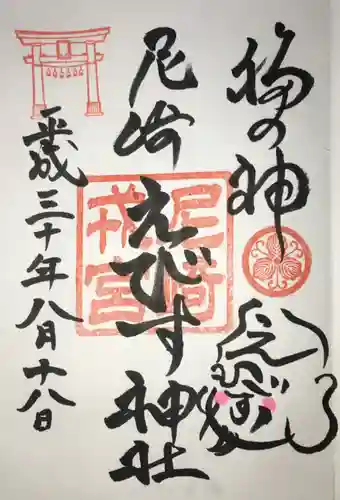 福の神
えびす
尼崎えびす神社
尼崎戎宮
平成三十年八月十八日